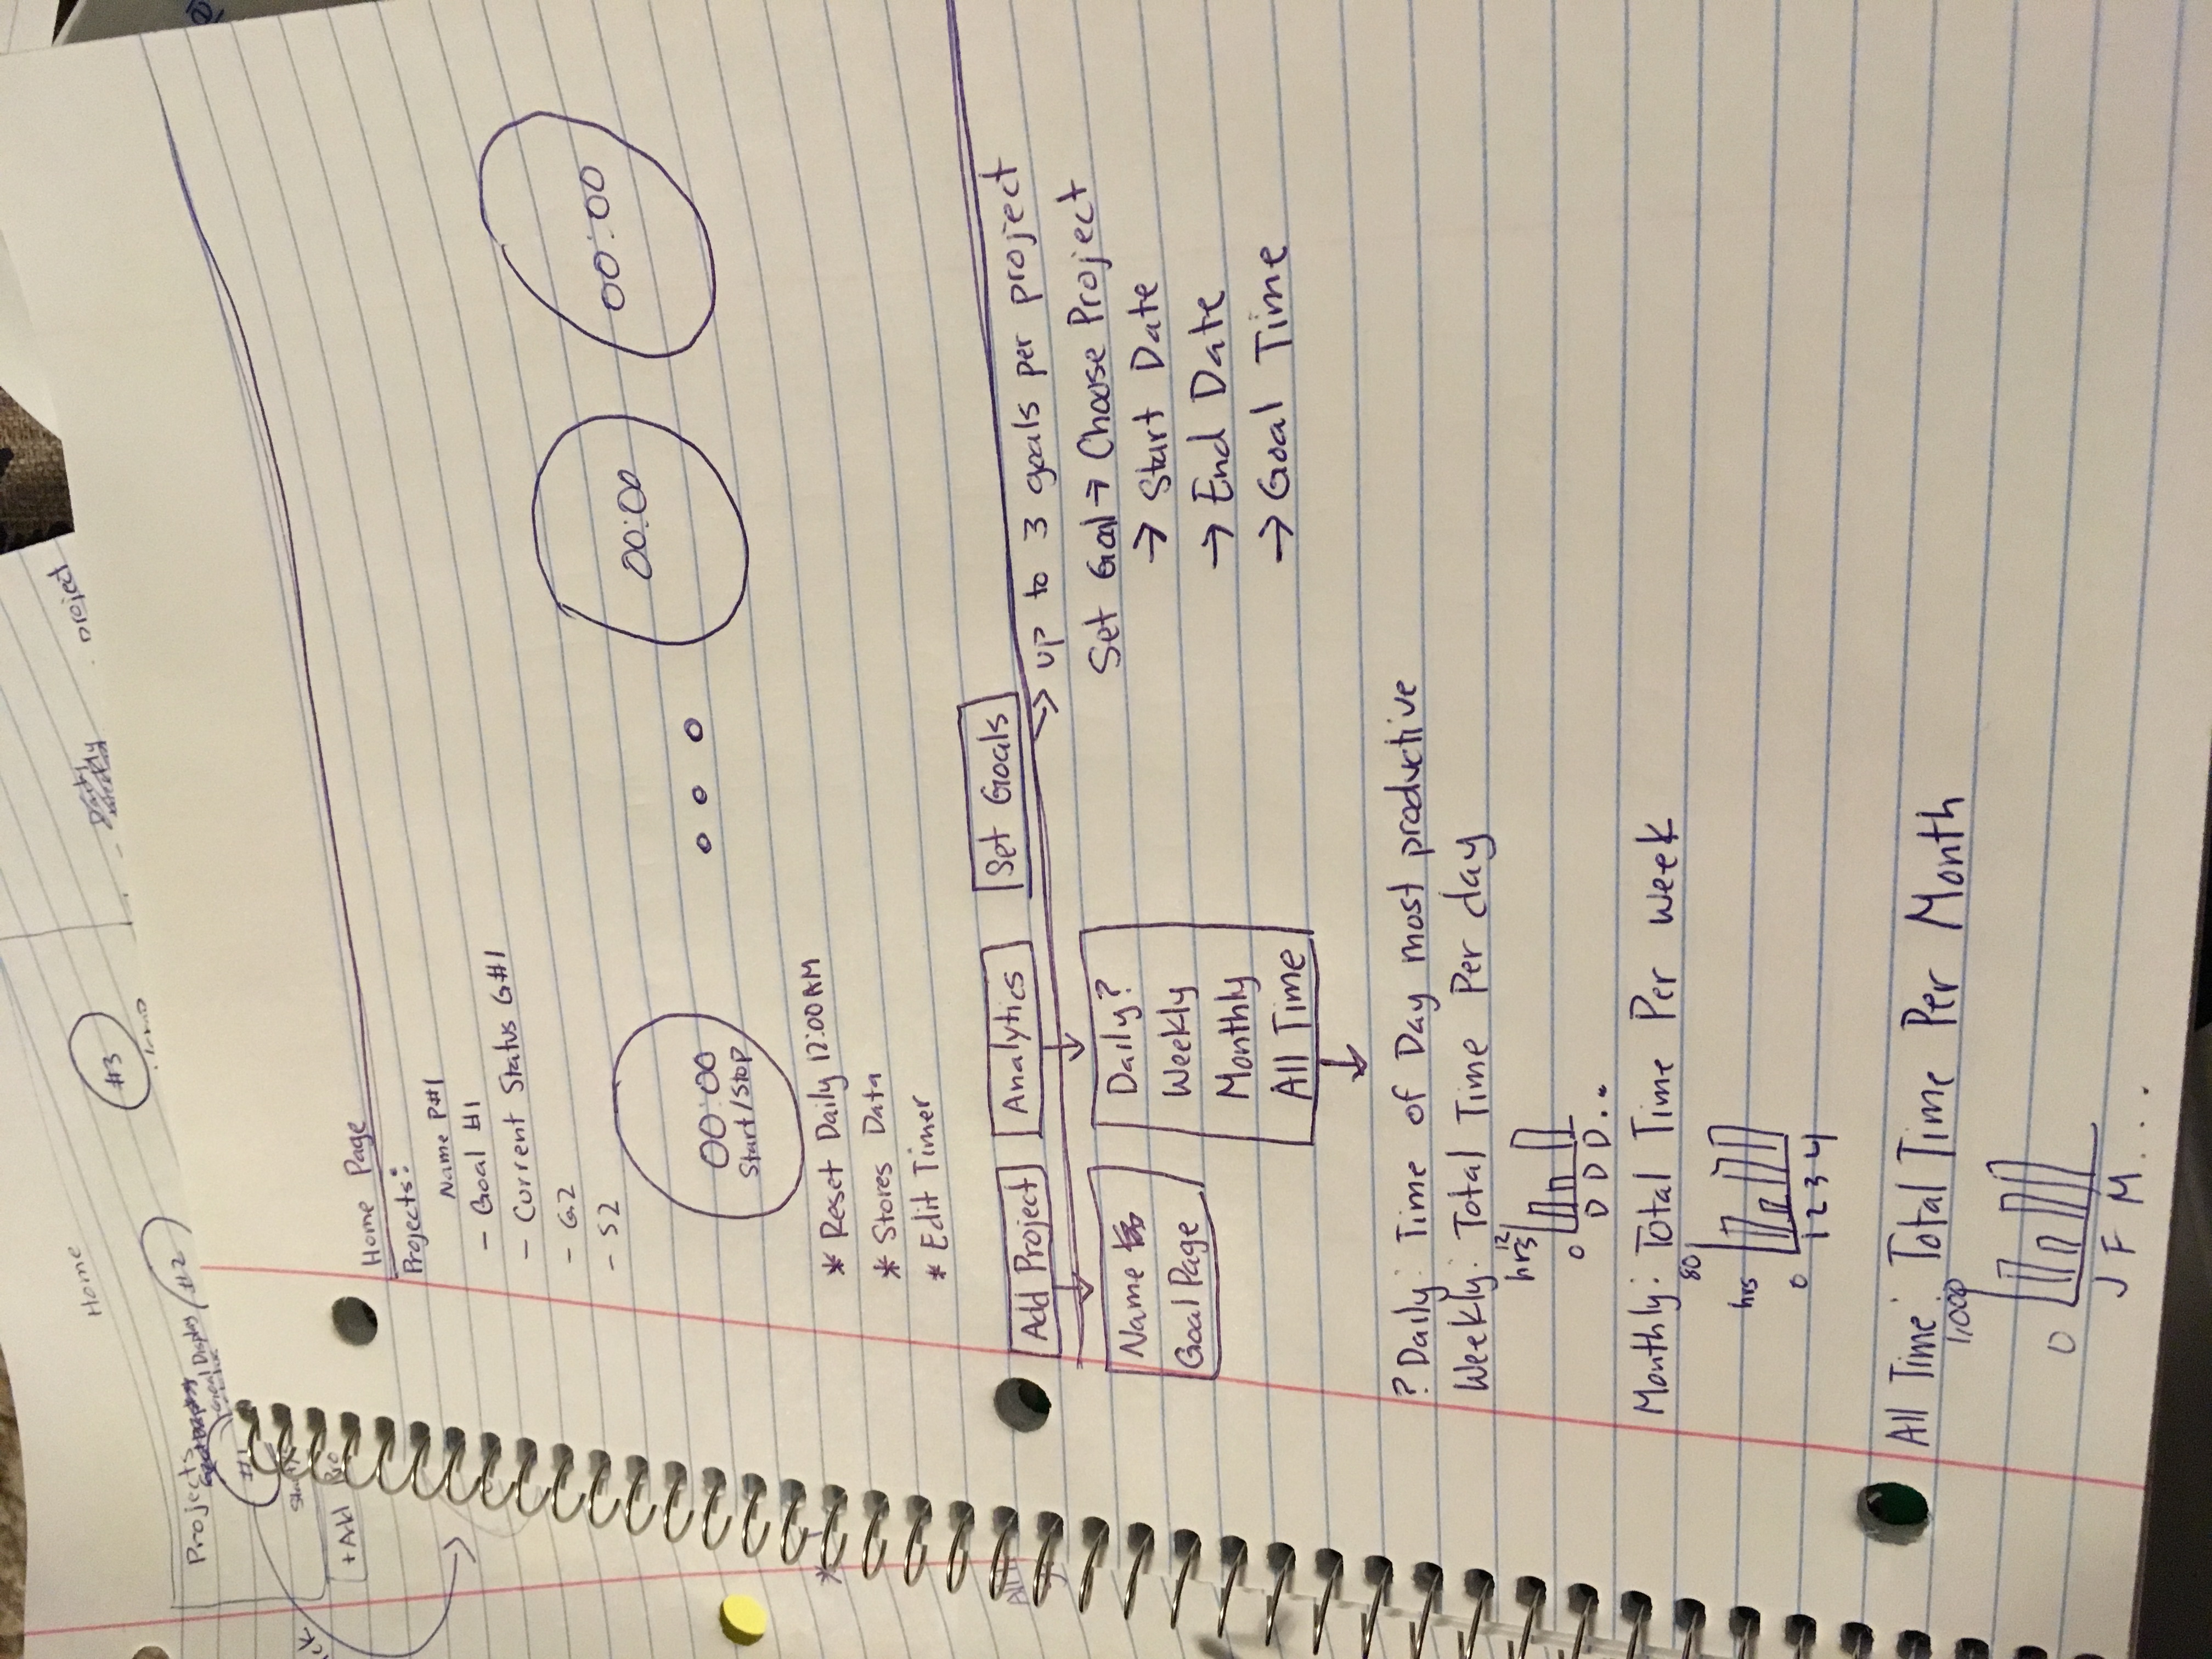 Home
#3
project
Projects
Goal Display
#2
#1
+Add
Home Page
Projects:
Name P#1
- Goal #1
- Current Status G#1
- G2
- S2
00:00
Start/Stop
00:00
00:00
* Reset Daily 12:00AM
* Stores Data
* Edit Timer
Add Project
Analytics
Set Goals
→ up to 3 goals per project
Name
Goal Page
Daily?
Weekly
Monthly
All Time
Set Goal → Choose Project
→ Start Date
→ End Date
→ Goal Time
? Daily: Time of Day most productive
Weekly: Total Time Per day
12
hrs
0
D D D...
Monthly: Total Time Per week
80
hrs
0
1 2 3 4
All Time: Total Time Per Month
1,000
0
J F M...